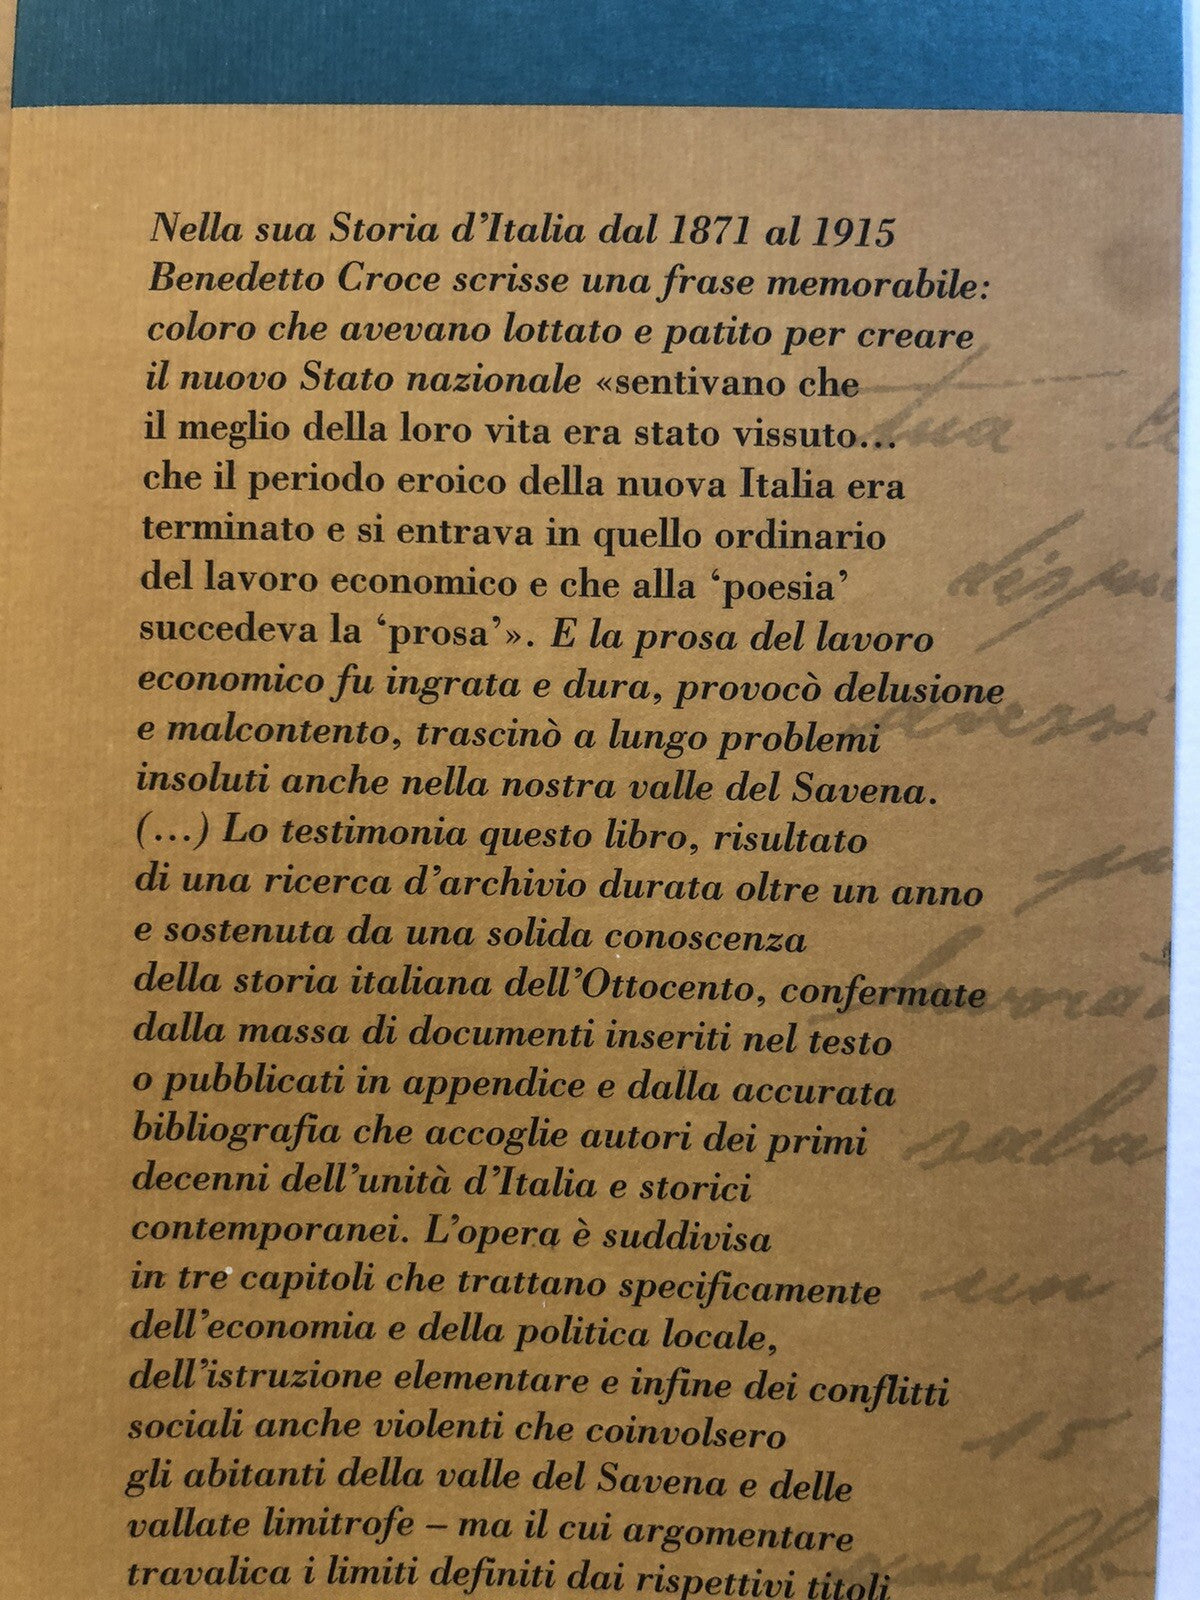 Nella sua Storia d'Italia dal 1871 al 1915
Benedetto Croce scrisse una frase memorabile:
coloro che avevano lottato e patito per creare
il nuovo Stato nazionale «sentivano che
il meglio della loro vita era stato vissuto...
che il periodo eroico della nuova Italia era
terminato e si entrava in quello ordinario
del lavoro economico e che alla ‘poesia’
succedeva la ‘prosa’». E la prosa del lavoro
economico fu ingrata e dura, provocò delusione
e malcontento, trascinò a lungo problemi
insoluti anche nella nostra valle del Savena.
(...) Lo testimonia questo libro, risultato
di una ricerca d'archivio durata oltre un anno
e sostenuta da una solida conoscenza
della storia italiana dell'Ottocento, confermate
dalla massa di documenti inseriti nel testo
o pubblicati in appendice e dalla accurata
bibliografia che accoglie autori dei primi
decenni dell'unità d'Italia e storici
contemporanei. L'opera è suddivisa
in tre capitoli che trattano specificamente
dell'economia e della politica locale,
dell'istruzione elementare e infine dei conflitti
sociali anche violenti che coinvolsero
gli abitanti della valle del Savena e delle
vallate limitrofe – ma il cui argomentare
travalica i limiti definiti dai rispettivi titoli
un
15